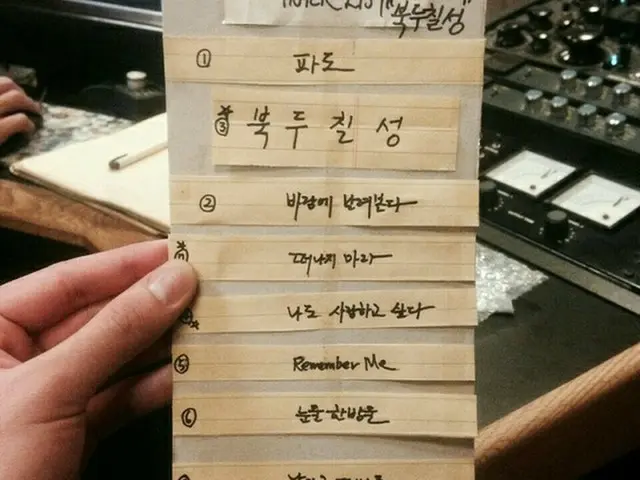 TRACK LIST "북두칠성"
① 파도
*③ 북두칠성
② 바람에 날려본다
* 떠나지 마라
* 나도 사랑하고 싶다
⑤ Remember Me
⑥ 눈물 한방울